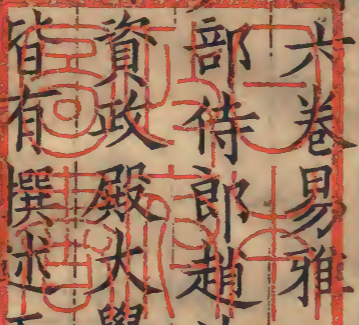 六卷易雅
部侍郎趙
資政殿大學
皆有撰述